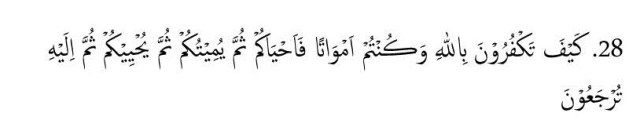 28. كَيْفَ تَكْفُرُوْنَ بِاللهِ وَكُنْتُمْ اَمْوَاتًا فَاَحْيَاكُمْ ثُمَّ يُمِيْتُكُمْ ثُمَّ يُحْيِيْكُمْ ثُمَّ اِلَيْهِ
تُرْجَعُوْنَ